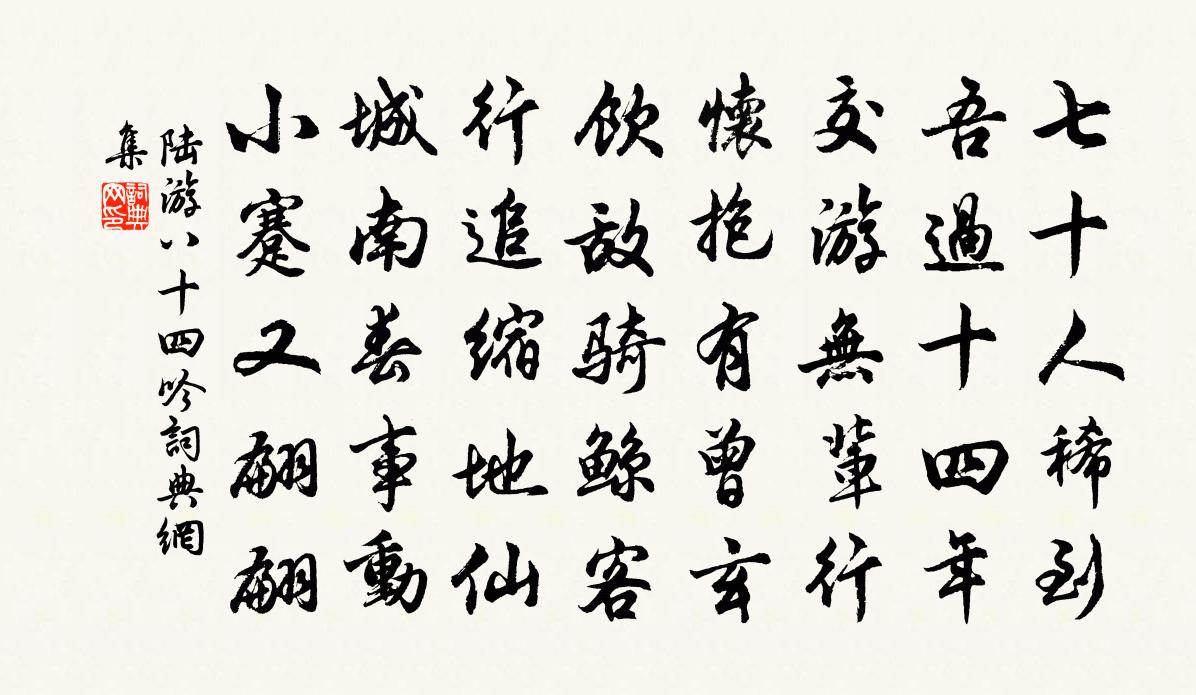 七十人稀到
吾過十四年
交游無輩行
懷抱有曾玄
飲敵騎鯨客
行追縮地仙
城南春事動
小蹇又翩翩
陸游八十四吟詞典網
集
詞典
网印